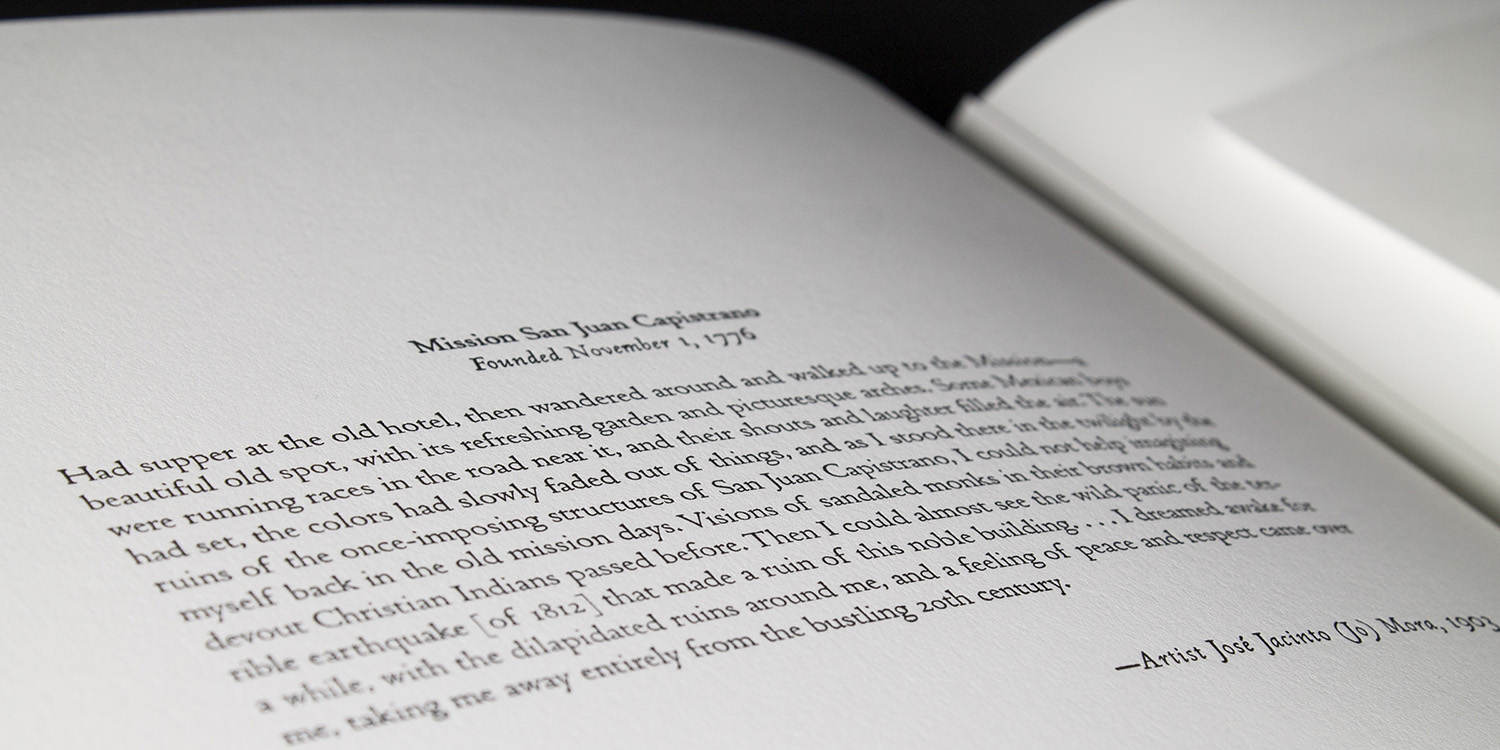 Mission San Juan Capistrano
Founded November 1, 1776
Had supper at the old hotel, then wandered around and walked up to the Mission—a
beautiful old spot, with its refreshing garden and picturesque arches. Some Mexican boys
were running races in the road near it, and their shouts and laughter filled the air. The sun
had set, the colors had slowly faded out of things, and as I stood there in the twilight by the
ruins of the once-imposing structures of San Juan Capistrano, I could not help imagining
myself back in the old mission days. Visions of sandaled monks in their brown habits and
devout Christian Indians passed before. Then I could almost see the wild panic of the ter-
rible earthquake [of 1812] that made a ruin of this noble building. . . . I dreamed awake for
a while, with the dilapidated ruins around me, and a feeling of peace and respect came over
me, taking me away entirely from the bustling 20th century.
—Artist José Jacinto (Jo) Mora, 1903